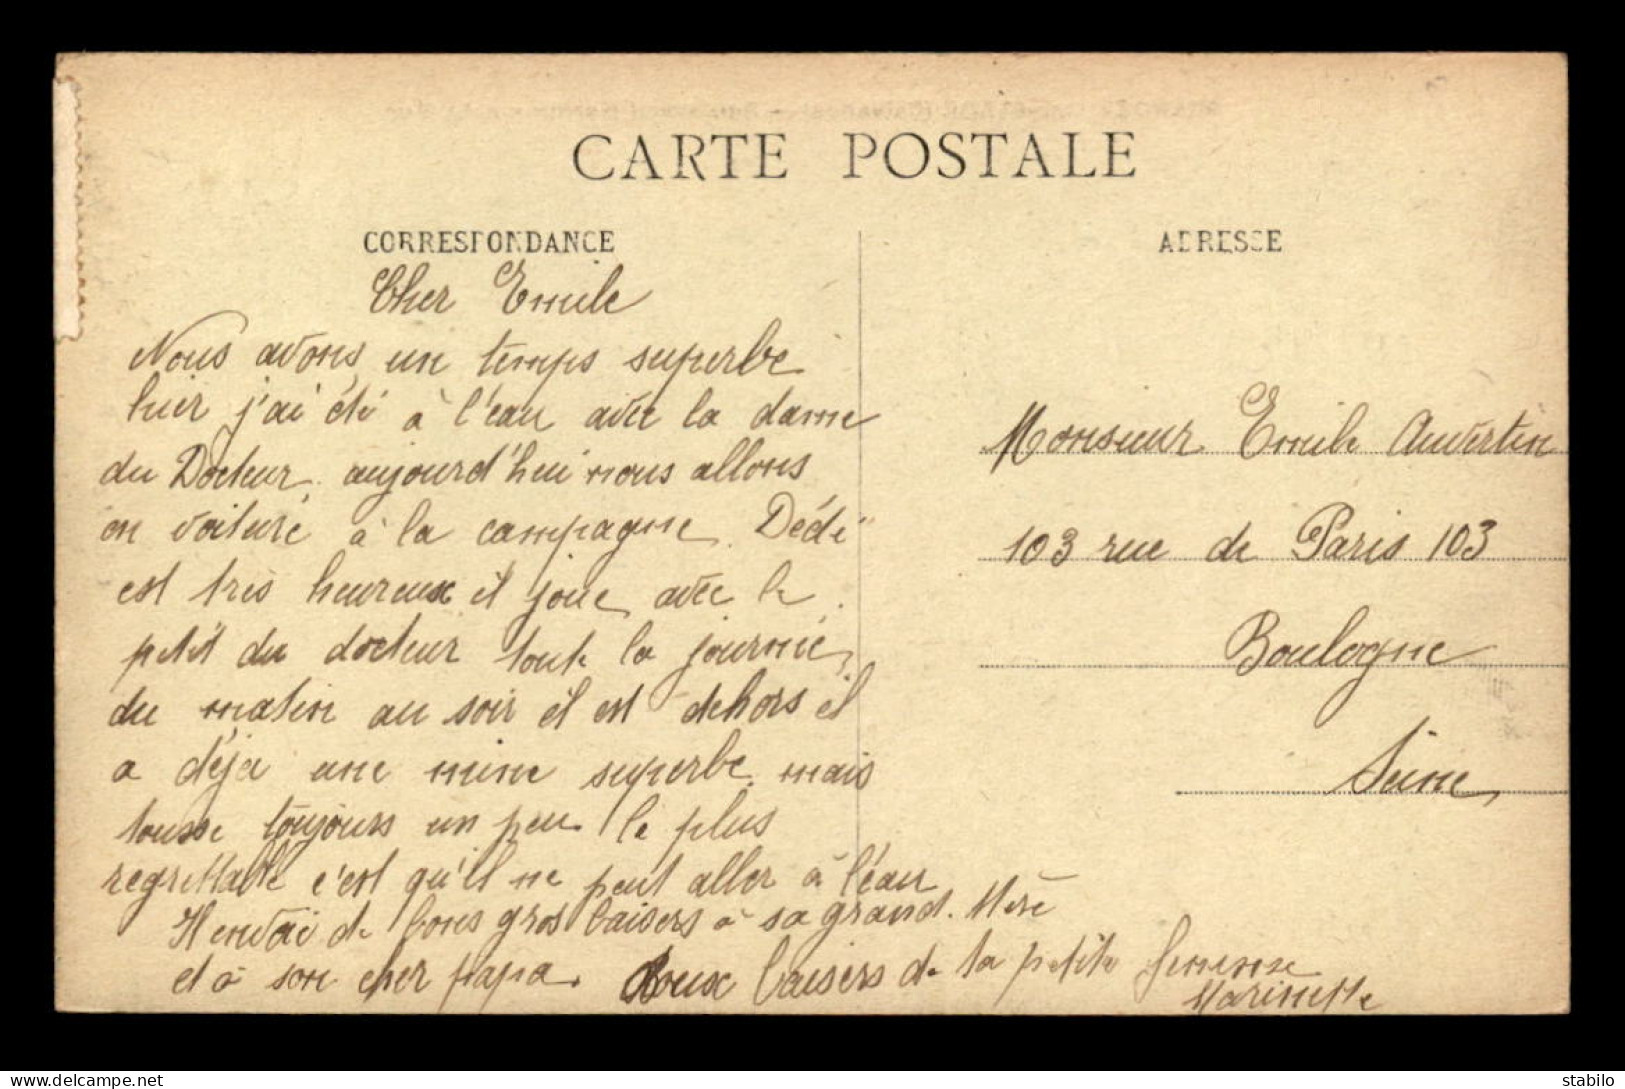 CARTE POSTALE
CORRESPONDANCE
ADRESSE
Cher Emile
Nous avons un temps superbe
hier j'ai été à l'eau avec la dame
du Docteur, aujourd'hui nous allons
en voiture à la campagne. Dédé
est très heureux il joue avec le
petit du docteur toute la journée,
du matin au soir il est dehors il
a déja une mine superbe, mais
tousse toujours un peu le plus
regrettable c'est qu'il ne peut aller à l'eau
Il envoi de bons gros baisers à sa grand-Mère
et à son cher papa. Doux baisers de ta petite femme
Marinette
Monsieur Emile Auvertin
103 rue de Paris 103
Boulogne
Seine
stabilo